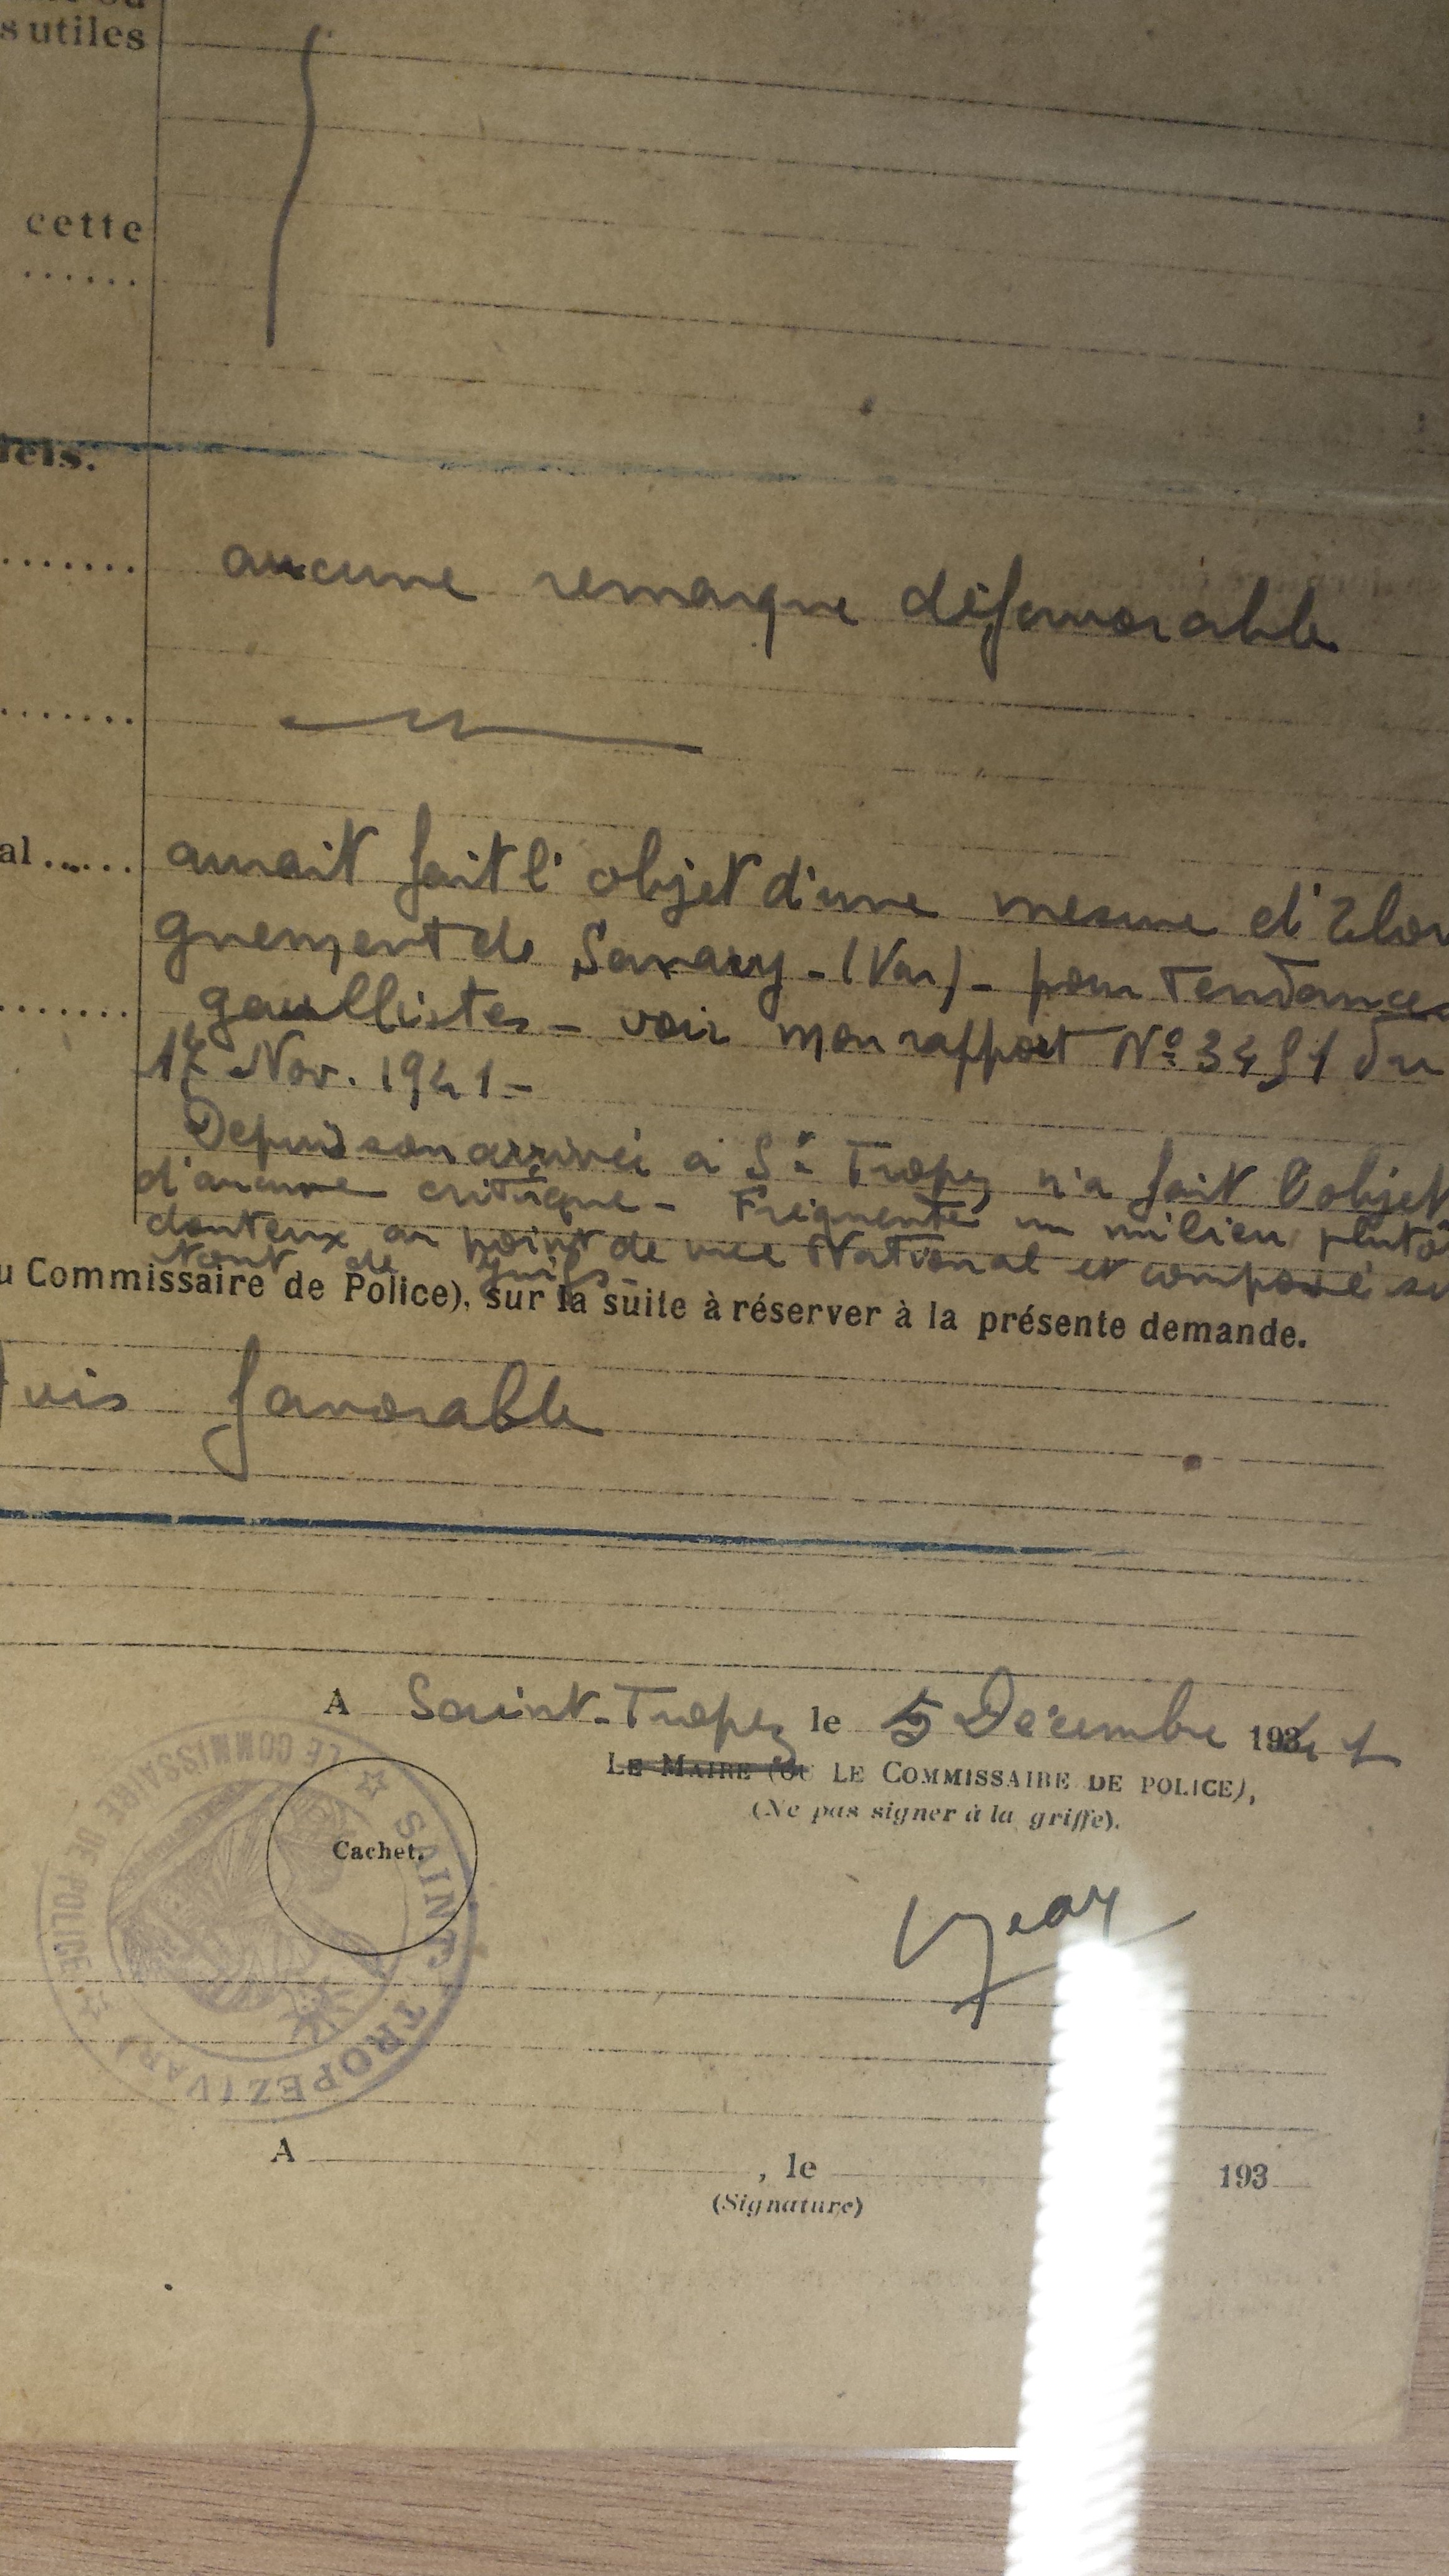 s utiles
cette
......
aucune remarque défavorable
al ...... aurait fait l'objet d'une mesure d'éloi
gnement de Sanary - (Var) - pour Tendances
gaullistes - voir mon rapport Nº 3451 du
Nov. 1941 -
Depuis son arrivée à St Tropez n'a fait l'objet
d'aucune critique - Fréquente un milieu plutôt
douteux au point de vue National et composé su
tout de juifs -
u Commissaire de Police), sur la suite à réserver à la présente demande.
favorable
A Saint-Tropez le 5 Décembre 1941
LE MAIRE (OU LE COMMISSAIRE DE POLICE),
(Ne pas signer à la griffe).
Cachet.
LE COMMISSAIRE DE POLICE
SAINT TROPEZ (VAR)
A , le 193
(Signature)